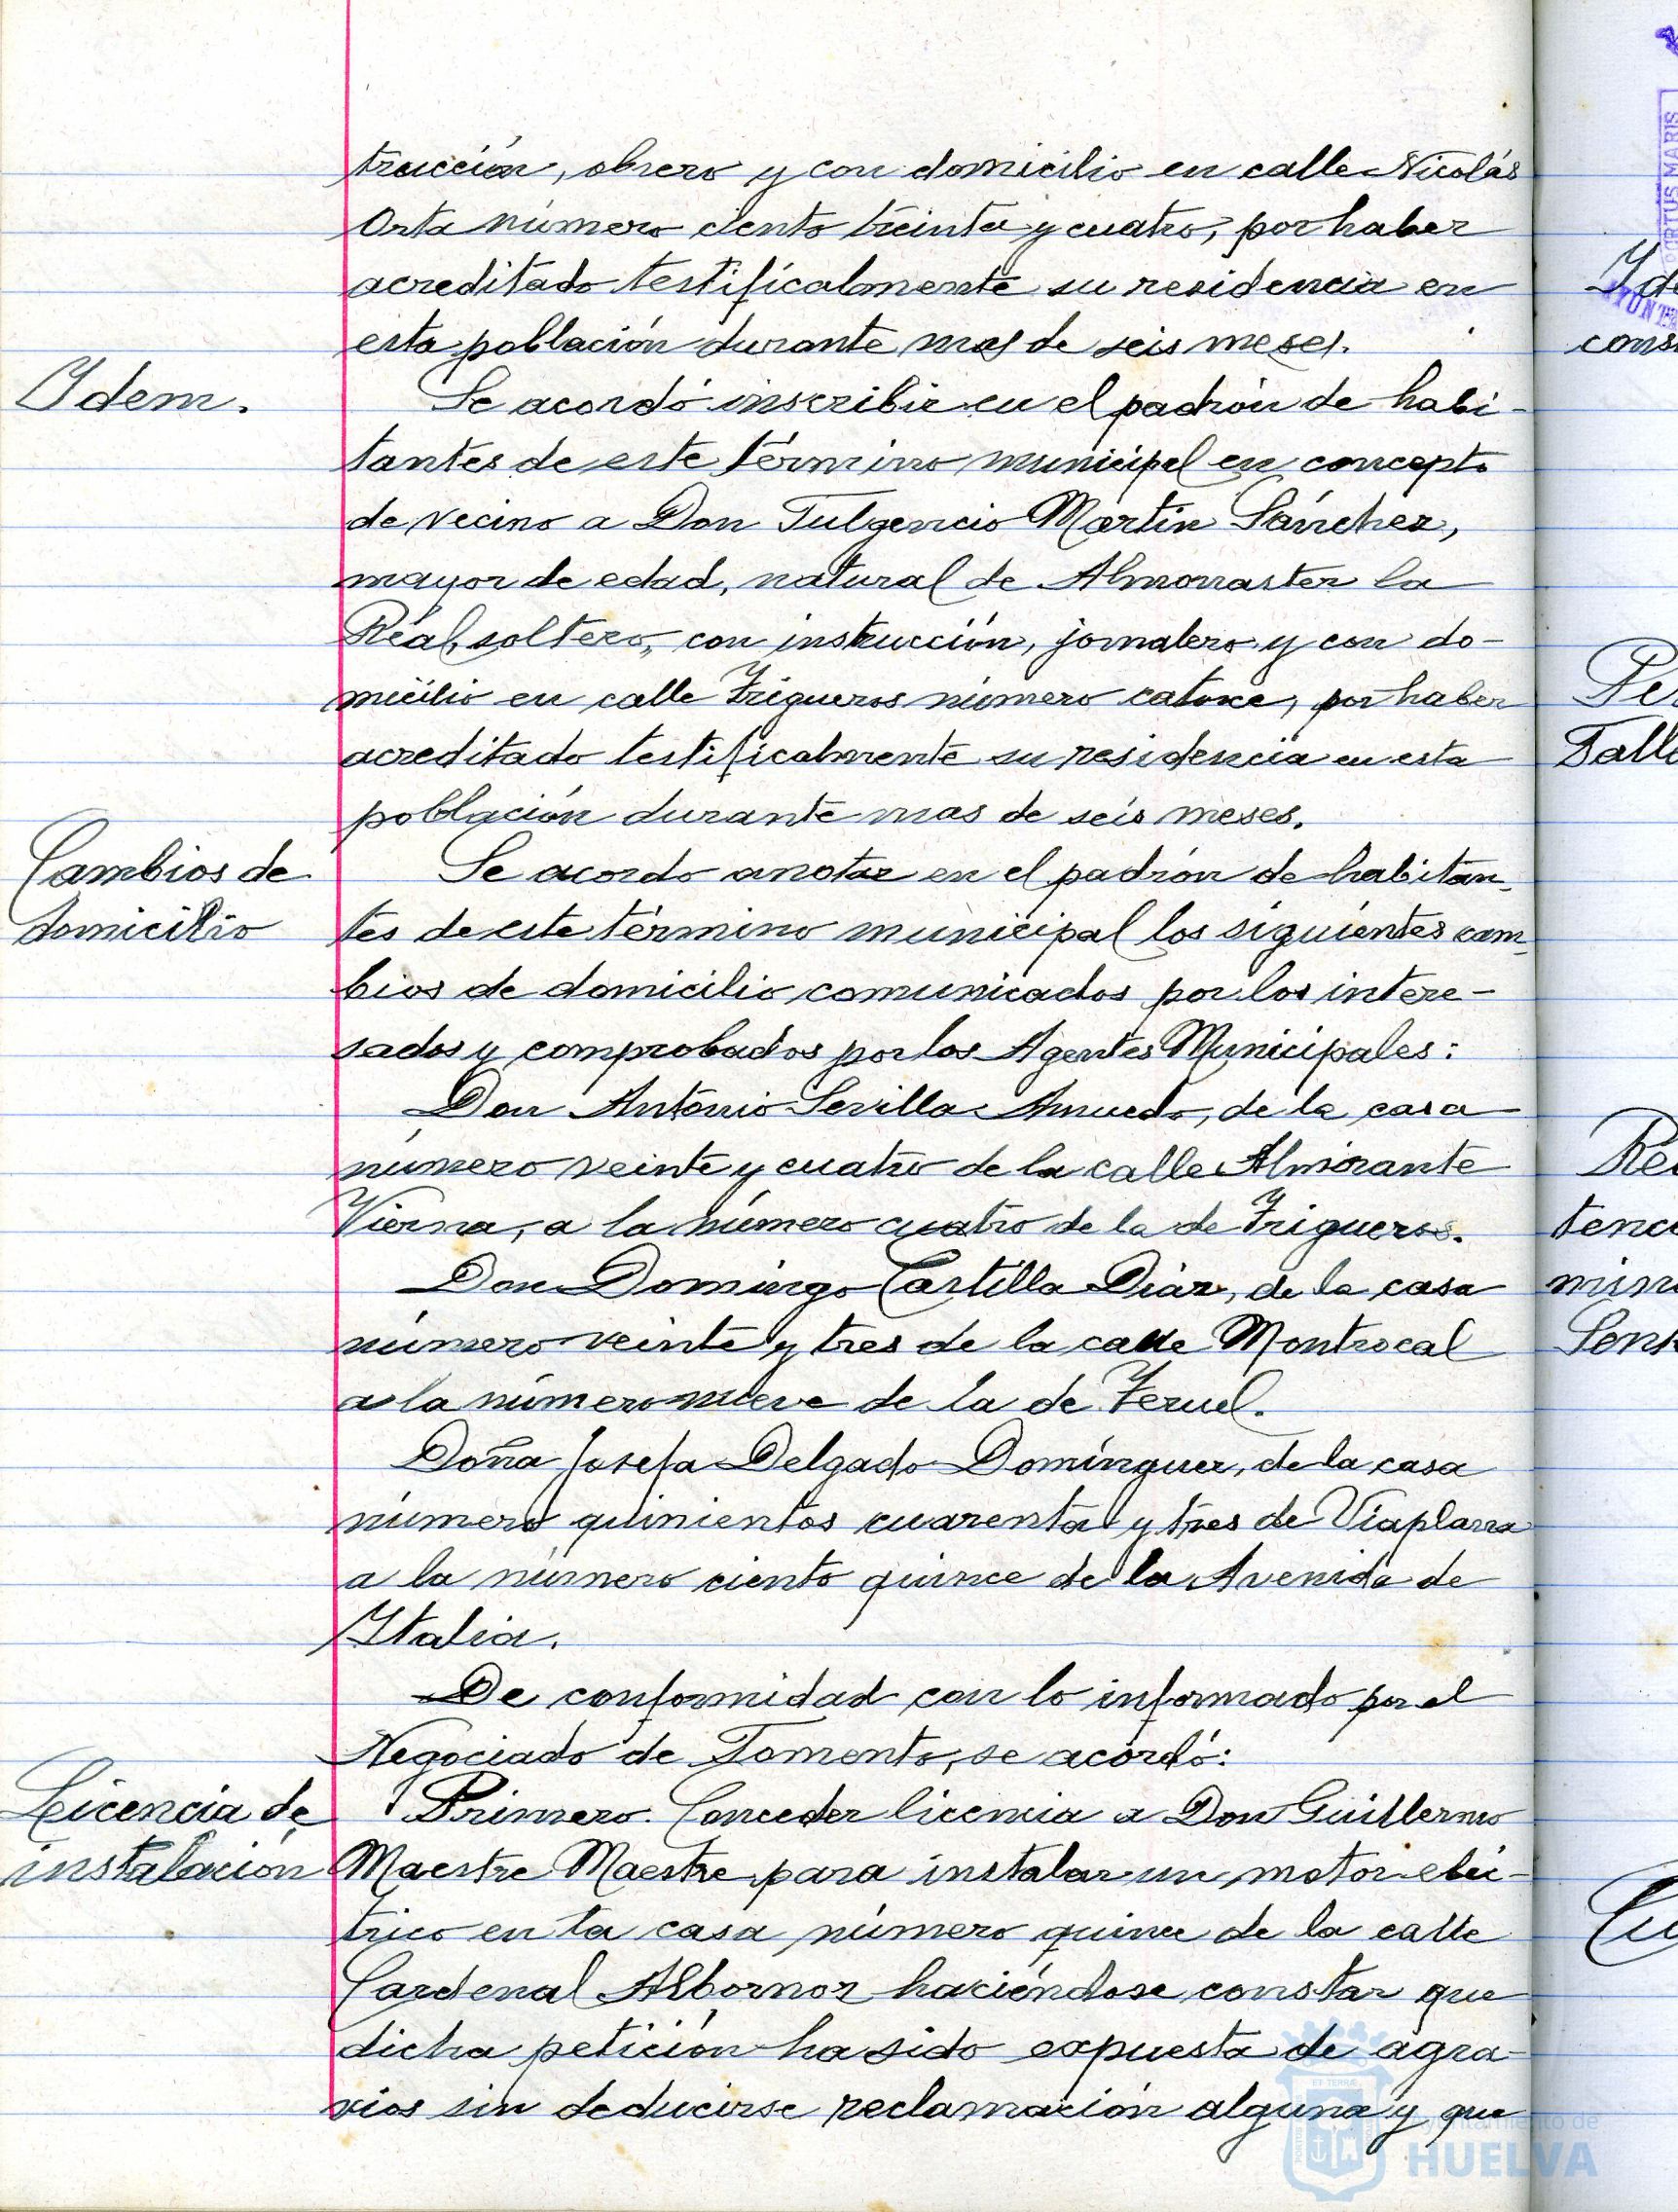 trucción, obrero y con domicilio en calle Nicolás
Orta número ciento treinta y cuatro, por haber
acreditado testificalmente su residencia en
esta población durante mas de seis meses.
Idem.
Se acordó inscribir en el padrón de habi-
tantes de este término municipal en concepto
de vecino a Don Fulgencio Martín Sánchez,
mayor de edad, natural de Almonaster la
Real, soltero, con instrucción, jornalero y con do-
micilio en calle Trigueros número catorce, por haber
acreditado testificalmente su residencia en esta
población durante mas de seis meses.
Cambios de
domicilio
Se acordo anotar en el padrón de habitan-
tes de este término municipal los siguientes cam-
bios de domicilio comunicados por los intere-
sados y comprobados por los Agentes Municipales:
Don Antonio Sevilla Amuedo, de la casa
número veinte y cuatro de la calle Almirante
Vierna, a la número cuatro de la de Trigueros.
Don Domingo Castilla Diaz, de la casa
número veinte y tres de la calle Montrocal
a la número nueve de la de Teruel.
Doña Josefa Delgado Domínguez, de la casa
número quinientos cuarenta y tres de Viaplana
a la número ciento quince de la Avenida de
Italia.
De conformidad con lo informado por el
Negociado de Fomento, se acordó:
Licencia de
instalación
Primero. Conceder licencia a Don Guillermo
Maestre Maestre para instalar un motor eléc-
trico en la casa número quince de la calle
Cardenal Albornoz haciéndose constar que
dicha petición ha sido expuesta de agra-
vios sin deducirse reclamación alguna y que
Ayuntamiento de
HUELVA